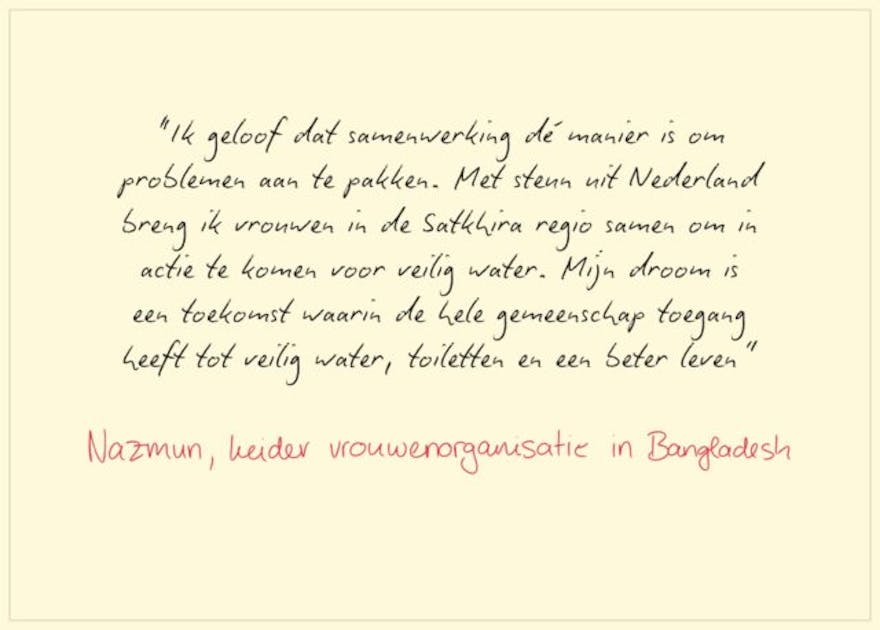 "Ik geloof dat samenwerking dé manier is om
problemen aan te pakken. Met steun uit Nederland
breng ik vrouwen in de Satkhira regio samen om in
actie te komen voor veilig water. Mijn droom is
een toekomst waarin de hele gemeenschap toegang
heeft tot veilig water, toiletten en een beter leven"
Nazmun, leider vrouwenorganisatie in Bangladesh